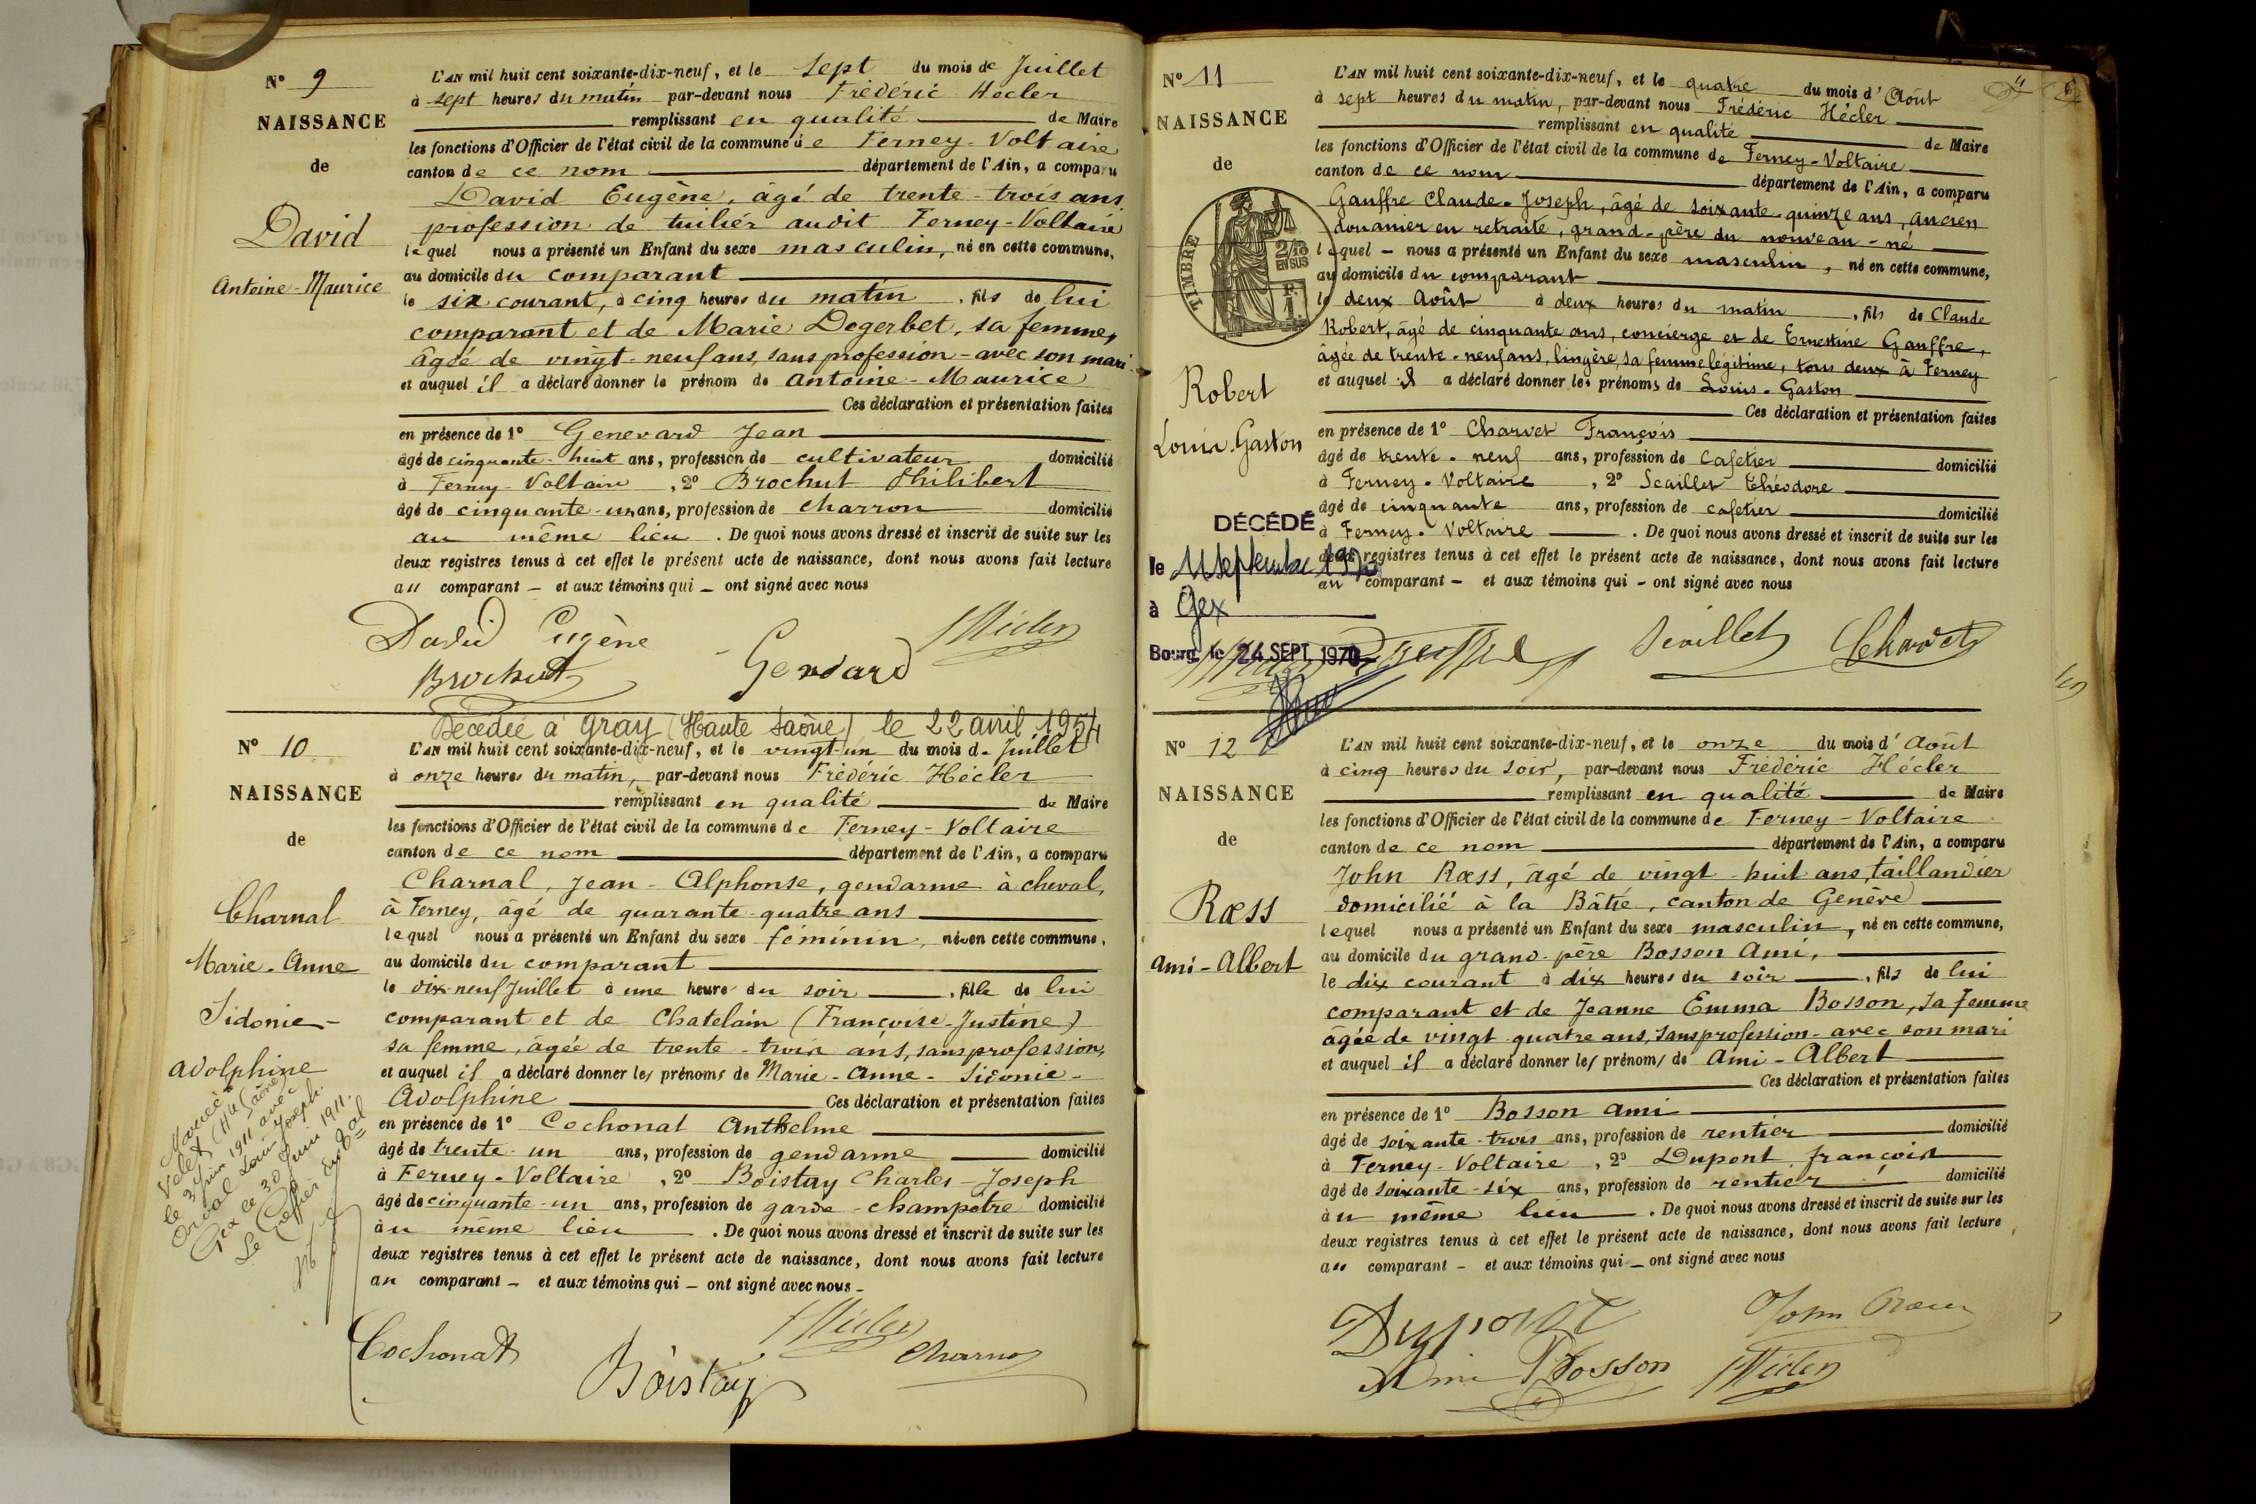 N° 9
NAISSANCE
de
David
Antoine-Maurice
L'AN mil huit cent soixante-dix-neuf, et le sept du mois de Juillet
à sept heures du matin par-devant nous Frédéric Hécler
remplissant en qualité de Maire
les fonctions d'Officier de l'état civil de la commune de Ferney-Voltaire
canton de ce nom département de l'Ain, a comparu
David Eugène, âgé de trente-trois ans
profession de tuilier audit Ferney-Voltaire
lequel nous a présenté un Enfant du sexe masculin, né en cette commune,
au domicile du comparant
le six courant, à cinq heures du matin, fils de lui
comparant et de Marie Degerbet, sa femme,
âgée de vingt-neuf ans, sans profession - avec son mari
et auquel il a déclaré donner le prénom de Antoine-Maurice
Ces déclaration et présentation faites
en présence de 1° Genevard Jean
âgé de cinquante-huit ans, profession de cultivateur domicilié
à Ferney-Voltaire, 2° Brochut Philibert
âgé de cinquante-un ans, profession de charron domicilié
au même lieu. De quoi nous avons dressé et inscrit de suite sur les
deux registres tenus à cet effet le présent acte de naissance, dont nous avons fait lecture
au comparant - et aux témoins qui - ont signé avec nous
David Eugène
Brochut
Décédée à Gray (Haute Saône) le 22 avril 1954
N° 10
NAISSANCE
de
Charnal
Marie-Anne
Sidonie-
Adolphine
Mariée à
Velet (Hte Saône)
le 3 Juin 1911 avec
Louis Joseph.
Gex le 30 Juin 1911.
Le Greffier
L'AN mil huit cent soixante-dix-neuf, et le vingt-un du mois de Juillet
à onze heures du matin, par-devant nous Frédéric Hécler
remplissant en qualité de Maire
les fonctions d'Officier de l'état civil de la commune de Ferney-Voltaire
canton de ce nom département de l'Ain, a comparu
Charnal, Jean-Alphonse, gendarme à cheval,
à Ferney, âgé de quarante-quatre ans
lequel nous a présenté un Enfant du sexe féminin, née en cette commune,
au domicile du comparant
le dix-neuf Juillet à une heure du soir, fille de lui
comparant et de Chatelain (Françoise-Justine)
sa femme, âgée de trente-trois ans, sans profession,
et auquel il a déclaré donner les prénoms de Marie-Anne-Sidonie-
Adolphine Ces déclaration et présentation faites
en présence de 1° Cochonat Anthelme
âgé de trente-un ans, profession de gendarme domicilié
à Ferney-Voltaire, 2° Boistay Charles-Joseph
âgé de cinquante-un ans, profession de garde-champêtre domicilié
au même lieu. De quoi nous avons dressé et inscrit de suite sur les
deux registres tenus à cet effet le présent acte de naissance, dont nous avons fait lecture
au comparant - et aux témoins qui - ont signé avec nous -
Cochonat
Boistay
Charnal
N° 11
NAISSANCE
de
TIMBRE
2/10
EN SUS
Robert
Louis Gaston
DÉCÉDÉ
le 11 septembre 1970
à Gex
Bourg, le 24 SEPT. 1970
L'AN mil huit cent soixante-dix-neuf, et le quatre du mois d'Août
à sept heures du matin, par-devant nous Frédéric Hécler
remplissant en qualité de Maire
les fonctions d'Officier de l'état civil de la commune de Ferney-Voltaire
canton de ce nom département de l'Ain, a comparu
Gauffre Claude-Joseph, âgé de soixante-quinze ans, ancien
douanier en retraite, grand-père du nouveau-né
lequel - nous a présenté un Enfant du sexe masculin, né en cette commune,
au domicile du comparant
le deux Août à deux heures du matin, fils de Claude
Robert, âgé de cinquante ans, concierge et de Ernestine Gauffre,
âgée de trente-neuf ans, lingère, sa femme légitime, tous deux à Ferney
et auquel il a déclaré donner les prénoms de Louis-Gaston
Ces déclaration et présentation faites
en présence de 1° Charvet François
âgé de trente-neuf ans, profession de cafetier domicilié
à Ferney-Voltaire, 2° Scaillet Théodore
âgé de cinquante ans, profession de cafetier domicilié
à Ferney-Voltaire. De quoi nous avons dressé et inscrit de suite sur les
deux registres tenus à cet effet le présent acte de naissance, dont nous avons fait lecture
au comparant - et aux témoins qui - ont signé avec nous
Charvet
N° 12
NAISSANCE
de
Rœss
Ami-Albert
L'AN mil huit cent soixante-dix-neuf, et le onze du mois d'Août
à cinq heures du soir, par-devant nous Frédéric Hécler
remplissant en qualité de Maire
les fonctions d'Officier de l'état civil de la commune de Ferney-Voltaire
canton de ce nom département de l'Ain, a comparu
John Rœss, âgé de vingt-huit ans, taillandier
domicilié à la Bâtie, canton de Genève
lequel nous a présenté un Enfant du sexe masculin, né en cette commune,
au domicile du grand-père Bosson Ami,
le dix courant à dix heures du soir, fils de lui
comparant et de Jeanne Emma Bosson, sa femme
âgée de vingt quatre ans, sans profession - avec son mari
et auquel il a déclaré donner les prénoms de Ami-Albert
Ces déclaration et présentation faites
en présence de 1° Bosson Ami
âgé de soixante-trois ans, profession de rentier domicilié
à Ferney-Voltaire, 2° Dupont françois
âgé de soixante-six ans, profession de rentier domicilié
au même lieu. De quoi nous avons dressé et inscrit de suite sur les
deux registres tenus à cet effet le présent acte de naissance, dont nous avons fait lecture
au comparant - et aux témoins qui - ont signé avec nous
Dupont
John Rœss
Ami Bosson